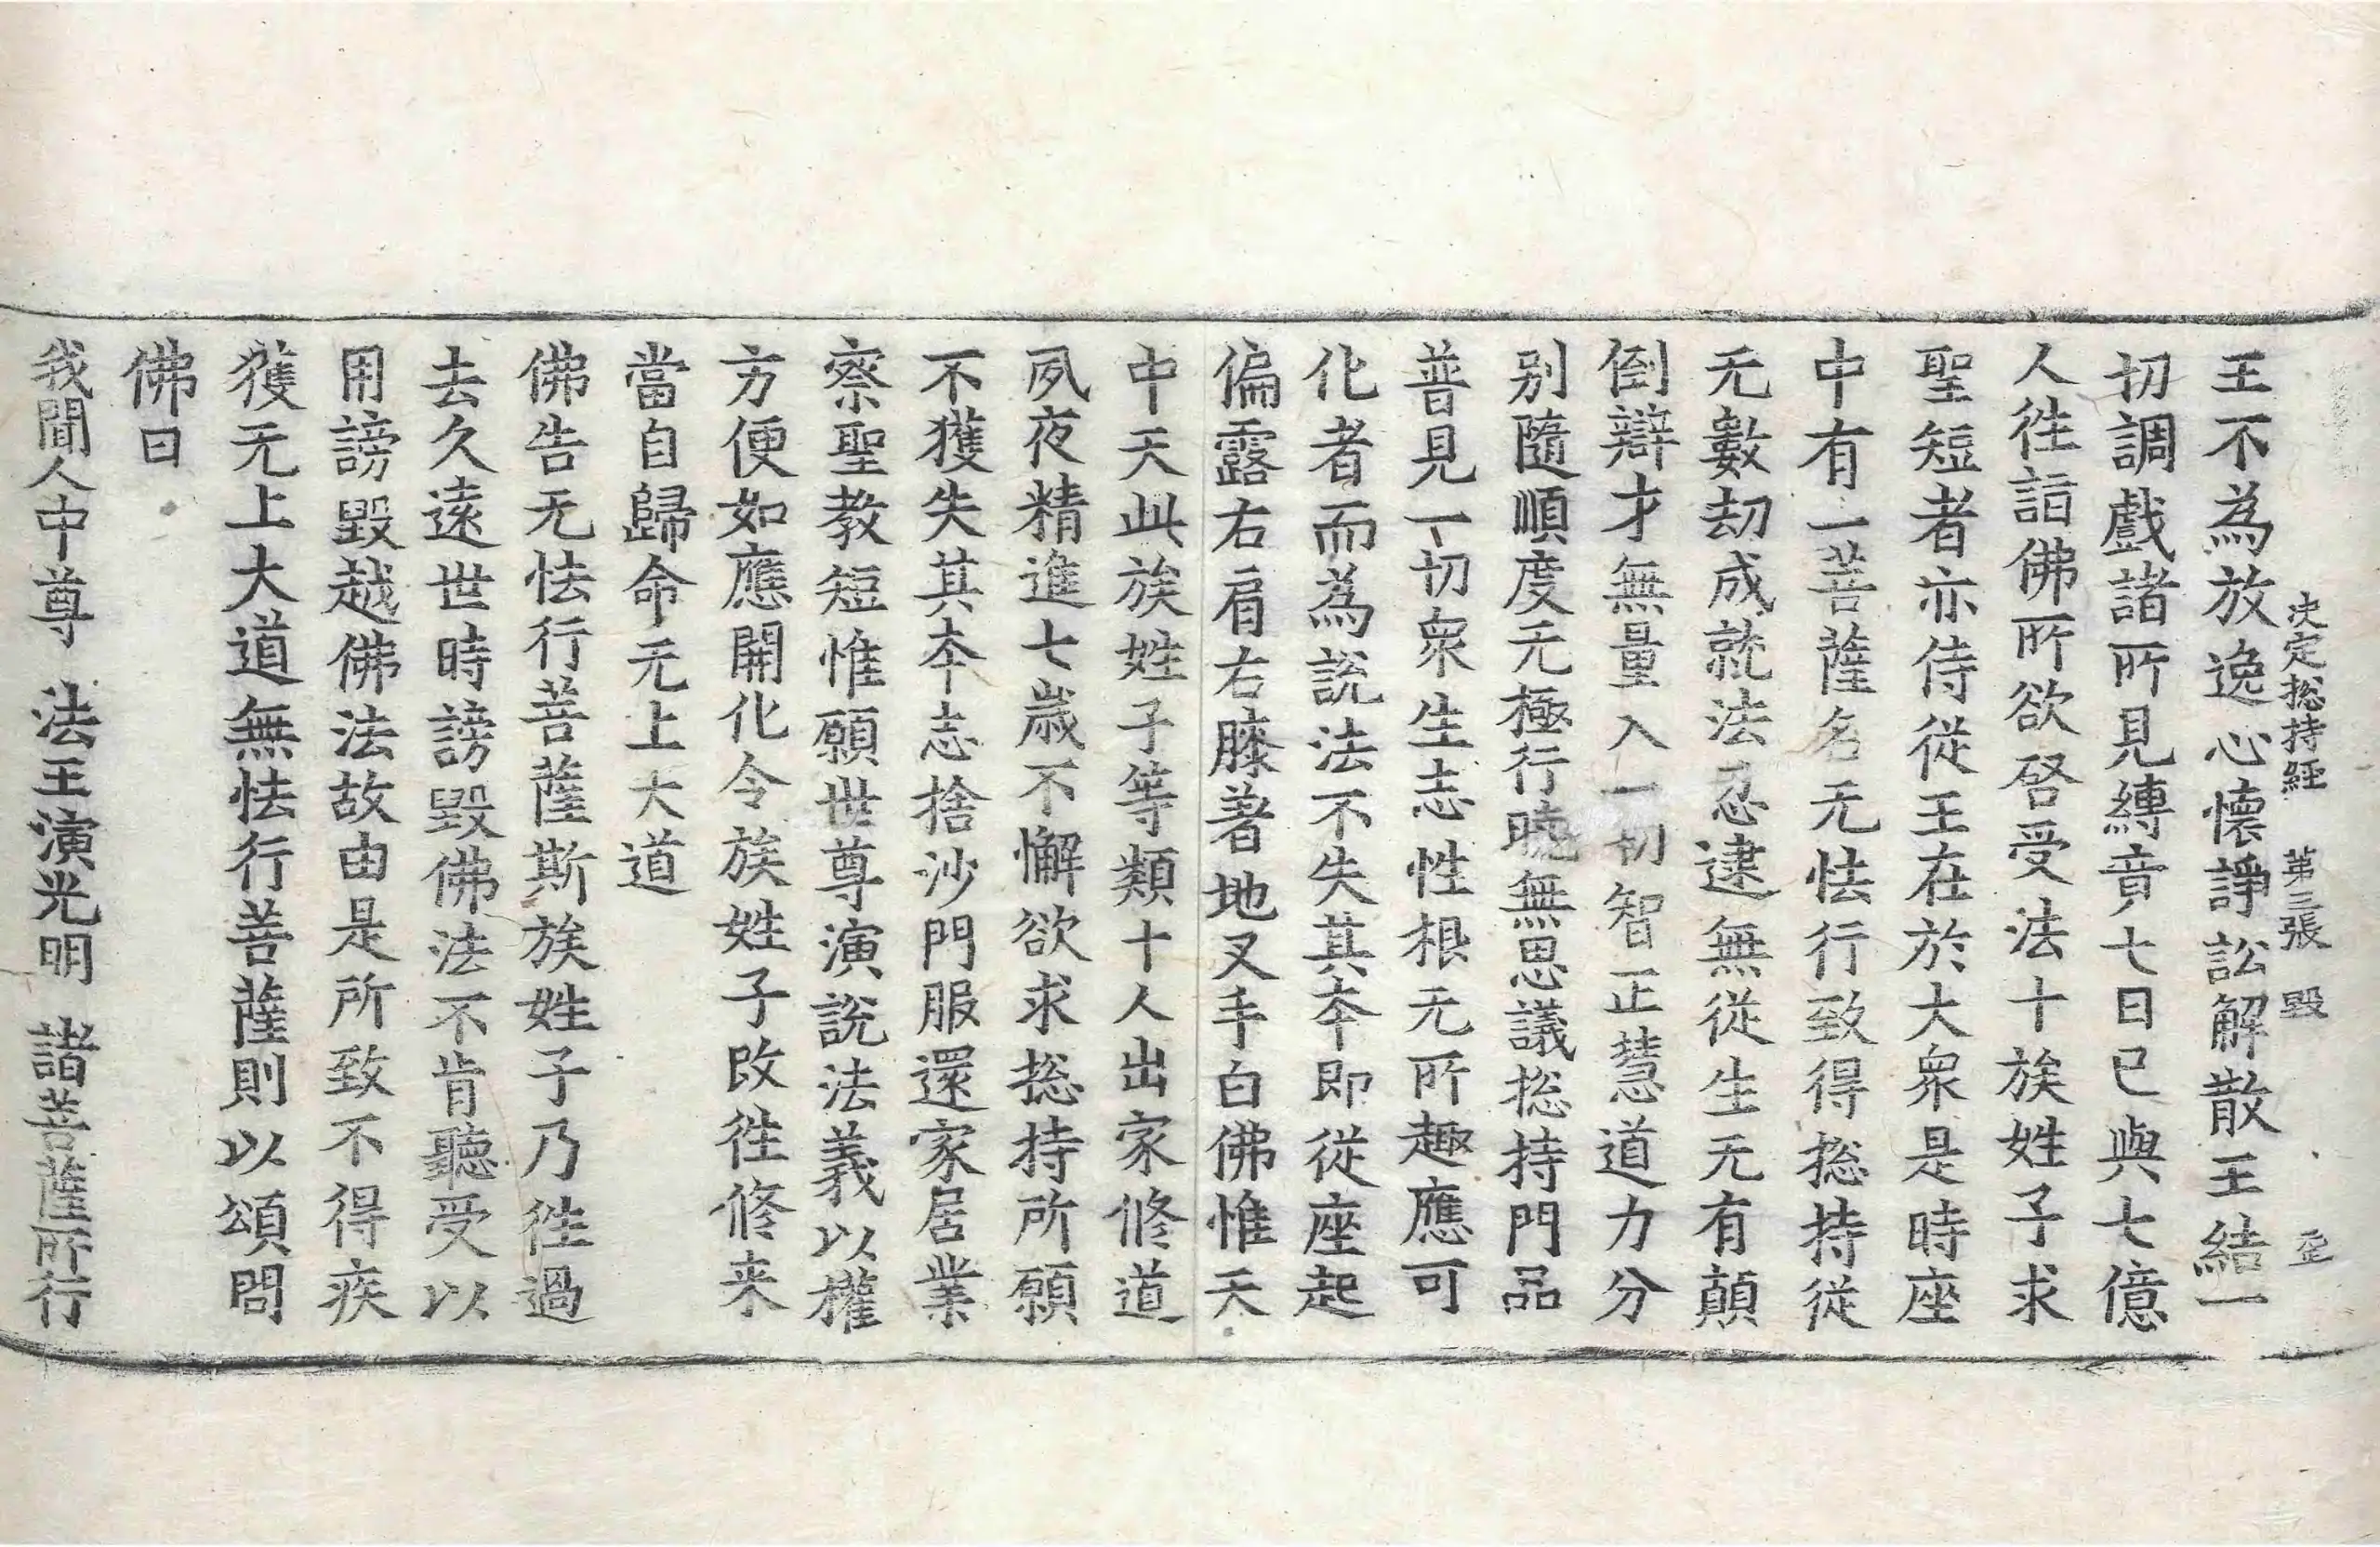 決定捴持經 第三張 毀
王不為放逸心懷諍訟解散王結一
切調戲諸所見縛賁七日已與七億
人徃詣佛所欲啓受法十族姓子求
聖短者亦侍從王在於大衆是時座
中有一菩薩名无怯行致得捴持從
无數劫成就法忍逮無從生无有顛
倒辯才無量入一切智正慧道力分
别隨順度无極行曉無思議捴持門品
普見一切衆生志性根元所趣應可
化者而為說法不失其夲即從座起
偏露右肩右膝著地叉手白佛惟天
中天此族姓子等類十人出家修道
夙夜精進七歲不懈欲求捴持所願
不獲失其夲志捨沙門服還家居業
察聖教短惟願世尊演說法義以權
方便如應開化令族姓子改徃修来
當自歸命无上大道
佛告无怯行菩薩斯族姓子乃徃過
去久遠世時謗毀佛法不肯聽受以
用謗毀越佛法故由是所致不得疾
獲无上大道無怯行菩薩則以頌問
佛曰
我聞人中尊 法王演光明 諸菩薩所行